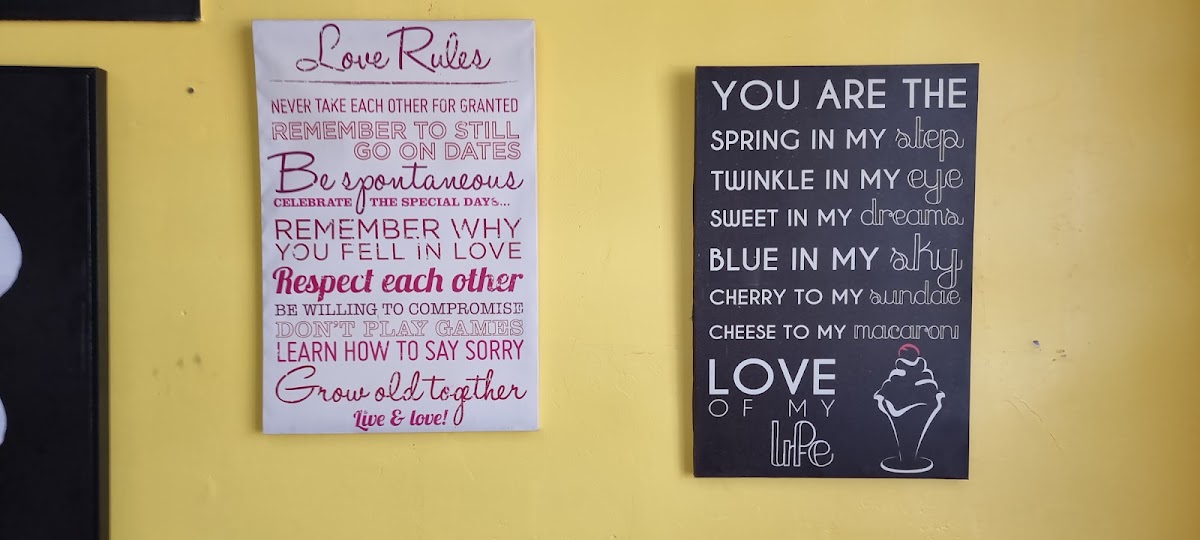 Love Rules
NEVER TAKE EACH OTHER FOR GRANTED
REMEMBER TO STILL
GO ON DATES
Be spontaneous
CELEBRATE THE SPECIAL DAYS...
REMEMBER WHY
YOU FELL IN LOVE
Respect each other
BE WILLING TO COMPROMISE
DON'T PLAY GAMES
LEARN HOW TO SAY SORRY
Grow old together
Live & love!
YOU ARE THE
SPRING IN MY step
TWINKLE IN MY eye
SWEET IN MY dreams
BLUE IN MY sky
CHERRY TO MY sundae
CHEESE TO MY macaroni
LOVE
OF MY
life